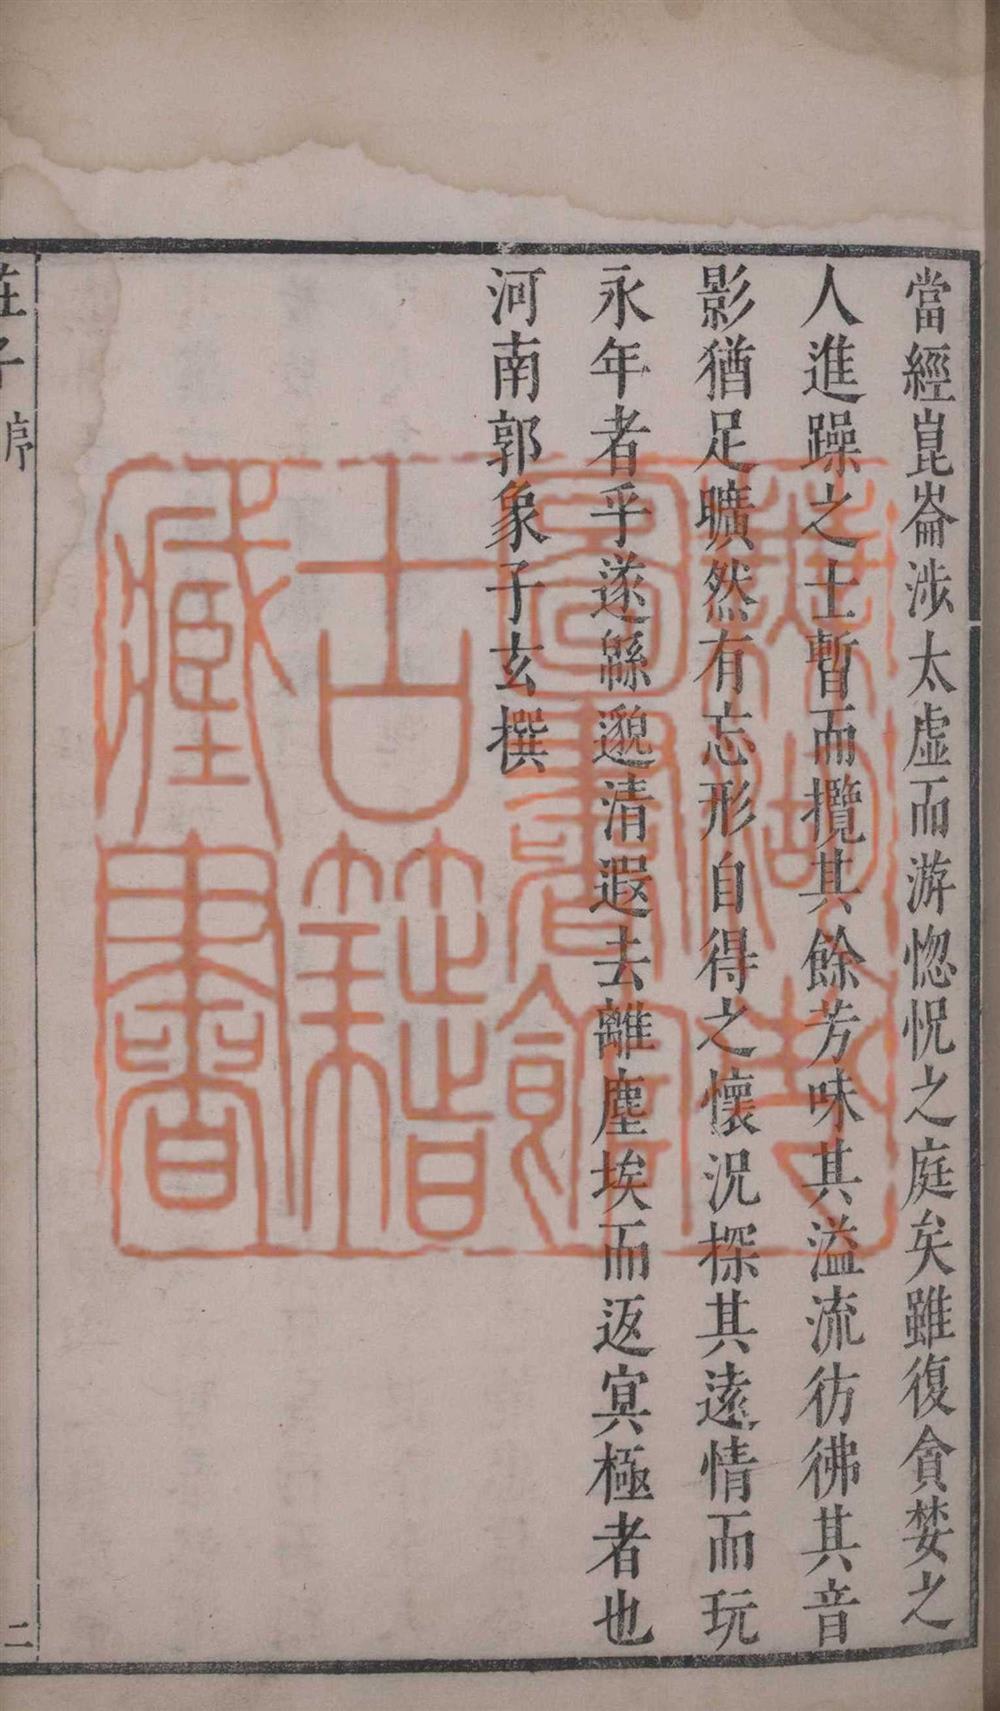 當經崑崙涉太虛而游惚怳之庭矣雖復貪婪之
人進躁之士暫而攬其餘芳味其溢流彷彿其音
影猶足曠然有忘形自得之懷況探其遠情而玩
永年者乎遂緜邈清遐去離塵埃而返冥極者也
河南郭象子玄撰
莊子 序
二
蕪湖市
圖書館
古籍
藏書